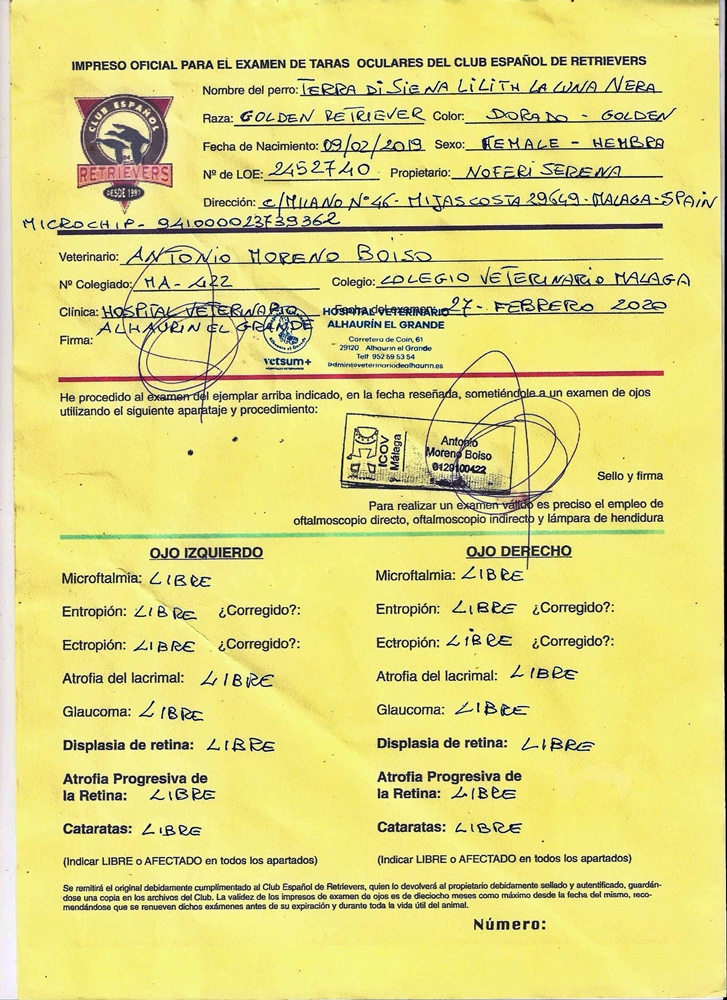 IMPRESO OFICIAL PARA EL EXAMEN DE TARAS OCULARES DEL CLUB ESPAÑOL DE RETRIEVERS
CLUB ESPAÑOL
DE
RETRIEVERS
DESDE 1992
Nombre del perro: TERRA DI SIENA LILITH LA LUNA NERA
Raza: GOLDEN RETRIEVER Color: DORADO - GOLDEN
Fecha de Nacimiento: 09/02/2019 Sexo: FEMALE - HEMBRA
Nº de LOE: 2452740 Propietario: NOFERI SERENA
Dirección: C/MILANO Nº46 - MIJAS COSTA 29649 - MALAGA - SPAIN
MICROCHIP - 941000023739362
Veterinario: ANTONIO MORENO BOISO
Nº Colegiado: MA - 422 Colegio: COLEGIO VETERINARIO MALAGA
Clínica: HOSPITAL VETERINARIO Fecha del examen: 27 - FEBRERO 2020
ALHAURIN EL GRANDE
Firma:
HOSPITAL VETERINARIO
ALHAURÍN EL GRANDE
Carretera de Coín, 61
29120 Alhaurín el Grande
Telf 952 59 53 54
admin@veterinariodealhaurin.es
vetsum+
He procedido al examen del ejemplar arriba indicado, en la fecha reseñada, sometiéndole a un examen de ojos
utilizando el siguiente aparataje y procedimiento:
ICOV
Málaga
Antonio
Moreno Boiso
0129100422
Sello y firma
Para realizar un examen válido es preciso el empleo de
oftalmoscopio directo, oftalmoscopio indirecto y lámpara de hendidura
OJO IZQUIERDO
Microftalmia: LIBRE
Entropión: LIBRE ¿Corregido?:
Ectropión: LIBRE ¿Corregido?:
Atrofia del lacrimal: LIBRE
Glaucoma: LIBRE
Displasia de retina: LIBRE
Atrofia Progresiva de
la Retina: LIBRE
Cataratas: LIBRE
(Indicar LIBRE o AFECTADO en todos los apartados)
OJO DERECHO
Microftalmia: LIBRE
Entropión: LIBRE ¿Corregido?:
Ectropión: LIBRE ¿Corregido?:
Atrofia del lacrimal: LIBRE
Glaucoma: LIBRE
Displasia de retina: LIBRE
Atrofia Progresiva de
la Retina: LIBRE
Cataratas: LIBRE
(Indicar LIBRE o AFECTADO en todos los apartados)
Se remitirá el original debidamente cumplimentado al Club Español de Retrievers, quien lo devolverá al propietario debidamente sellado y autentificado, guardán-
dose una copia en los archivos del Club. La validez de los impresos de examen de ojos es de dieciocho meses como máximo desde la fecha del mismo, reco-
mendándose que se renueven dichos exámenes antes de su expiración y durante toda la vida útil del animal.
Número: